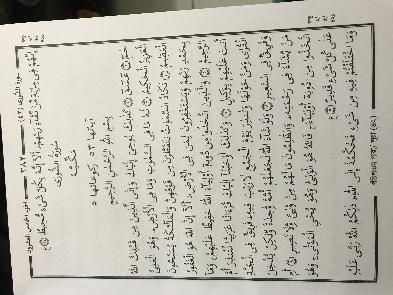 سورة الشورى (٤٢) ٣٨٧
إِنَّهُمْ فِي مِرْيَةٍ مِّنْ لِّقَاءِ رَبِّهِمْ أَلَا إِنَّهُ بِكُلِّ شَيْءٍ مُّحِيطٌ
سُورَةُ الشُّورَى
مَكِّيَّةٌ
آياتها ٥٣ ركوعاتها ٥
بِسْمِ اللهِ الرَّحْمٰنِ الرَّحِيْمِ
حٰمٓ عٓسٓقٓ كَذٰلِكَ يُوحِي إِلَيْكَ وَإِلَى الَّذِينَ مِنْ قَبْلِكَ اللهُ
الْعَزِيزُ الْحَكِيمُ لَهُ مَا فِي السَّمٰوٰتِ وَمَا فِي الْأَرْضِ وَهُوَ الْعَلِيُّ
الْعَظِيمُ تَكَادُ السَّمٰوٰتُ يَتَفَطَّرْنَ مِنْ فَوْقِهِنَّ وَالْمَلٰئِكَةُ يُسَبِّحُونَ
بِحَمْدِ رَبِّهِمْ وَيَسْتَغْفِرُونَ لِمَنْ فِي الْأَرْضِ أَلَا إِنَّ اللهَ هُوَ الْغَفُورُ
الرَّحِيمُ وَالَّذِينَ اتَّخَذُوا مِنْ دُونِهِ أَوْلِيَاءَ اللهُ حَفِيظٌ عَلَيْهِمْ وَمَا
أَنْتَ عَلَيْهِمْ بِوَكِيلٍ وَكَذٰلِكَ أَوْحَيْنَا إِلَيْكَ قُرْآنًا عَرَبِيًّا لِّتُنْذِرَ أُمَّ
الْقُرٰى وَمَنْ حَوْلَهَا وَتُنْذِرَ يَوْمَ الْجَمْعِ لَا رَيْبَ فِيهِ فَرِيقٌ فِي الْجَنَّةِ
وَفَرِيقٌ فِي السَّعِيرِ وَلَوْ شَاءَ اللهُ لَجَعَلَهُمْ أُمَّةً وَّاحِدَةً وَّلٰكِنْ يُّدْخِلُ
مَنْ يَّشَاءُ فِي رَحْمَتِهِ وَالظّٰلِمُونَ مَا لَهُمْ مِّنْ وَّلِيٍّ وَّلَا نَصِيرٍ أَمِ
اتَّخَذُوا مِنْ دُونِهِ أَوْلِيَاءَ فَاللهُ هُوَ الْوَلِيُّ وَهُوَ يُحْيِي الْمَوْتٰى وَهُوَ
عَلٰى كُلِّ شَيْءٍ قَدِيرٌ
وَمَا اخْتَلَفْتُمْ فِيهِ مِنْ شَيْءٍ فَحُكْمُهُ إِلَى اللهِ ذٰلِكُمُ اللهُ رَبِّي عَلَيْهِ